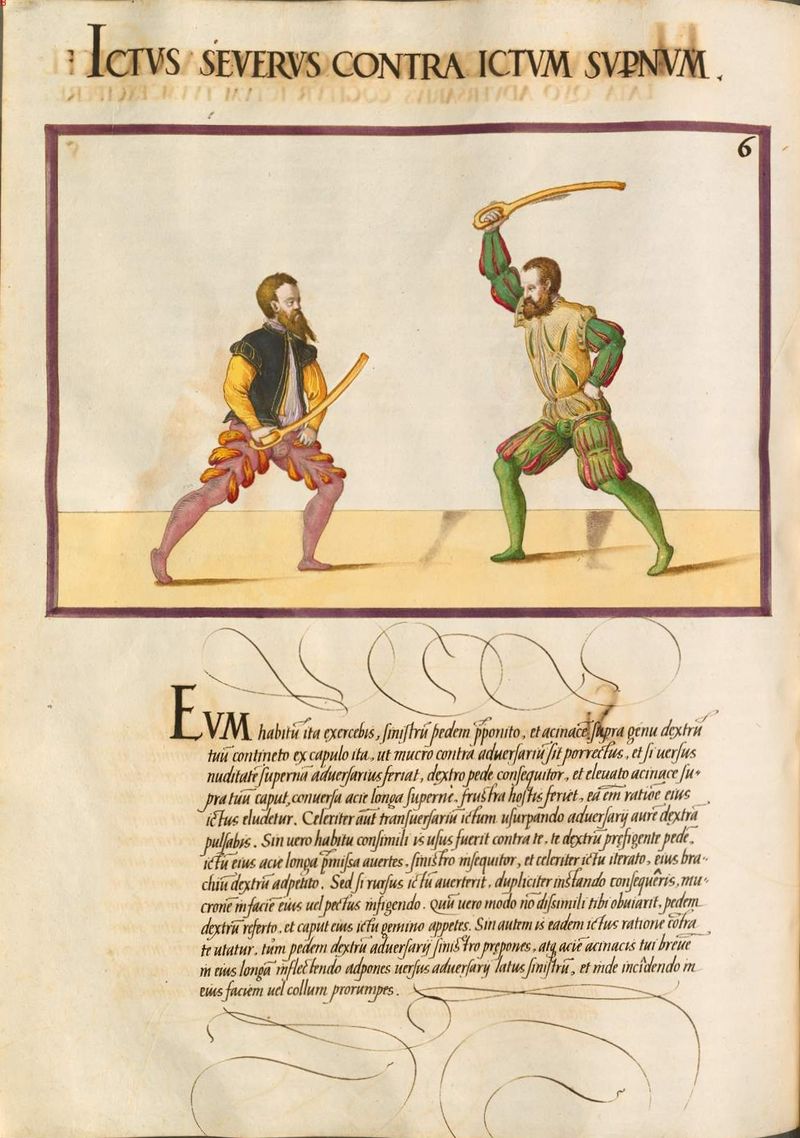 ICTVS SEVERVS CONTRA ICTVM SVPNVM.
6
EVM habitũ ita exercebis, sinistrũ pedem p̄ponito, et acinacẽ supra genu dextrũ
tuũ contineto ex capulo ita, ut mucro contra aduersariũ sit porrectus, et si uersus
nuditatẽ supernã aduersarius feriat, dextro pede consequitor, et eleuato acinace su-
pra tuũ caput, conuersa acie longa supernè, frustra hostis feriet, ea em̃ ratiõe eius
ictus eludetur. Celeriter aũt transuersariũ ictum usurpando aduersarij aurẽ dextrã
pulsabis. Sin uero habitu consimili is usus fuerit contra te, te dextrũ prefigente pedẽ,
ictũ eius acie longa p̄missa auertes, sinistro insequitor, et celeriter ictu iterato, eius bra-
chiũ dextrũ adpetito. Sed si rursus ictũ auerterit, dupliciter instando consequêris, mu-
cronẽ in faciẽ eius uel pectus infigendo. Qũ uero modo nõ disimili tibi obuiarit, pedem
dextrũ referto, et caput eius ictu gemino appetes. Sin autem is eadem ictus ratione cõtra
te utatur, tum pedem dextrũ aduersarij sinistro prepones, atq acie acinacis tui breue
in eius longã inflectendo adpones uersus aduersarij latus sinistrũ, et inde incidendo in
eius faciem uel collum prorumpes.